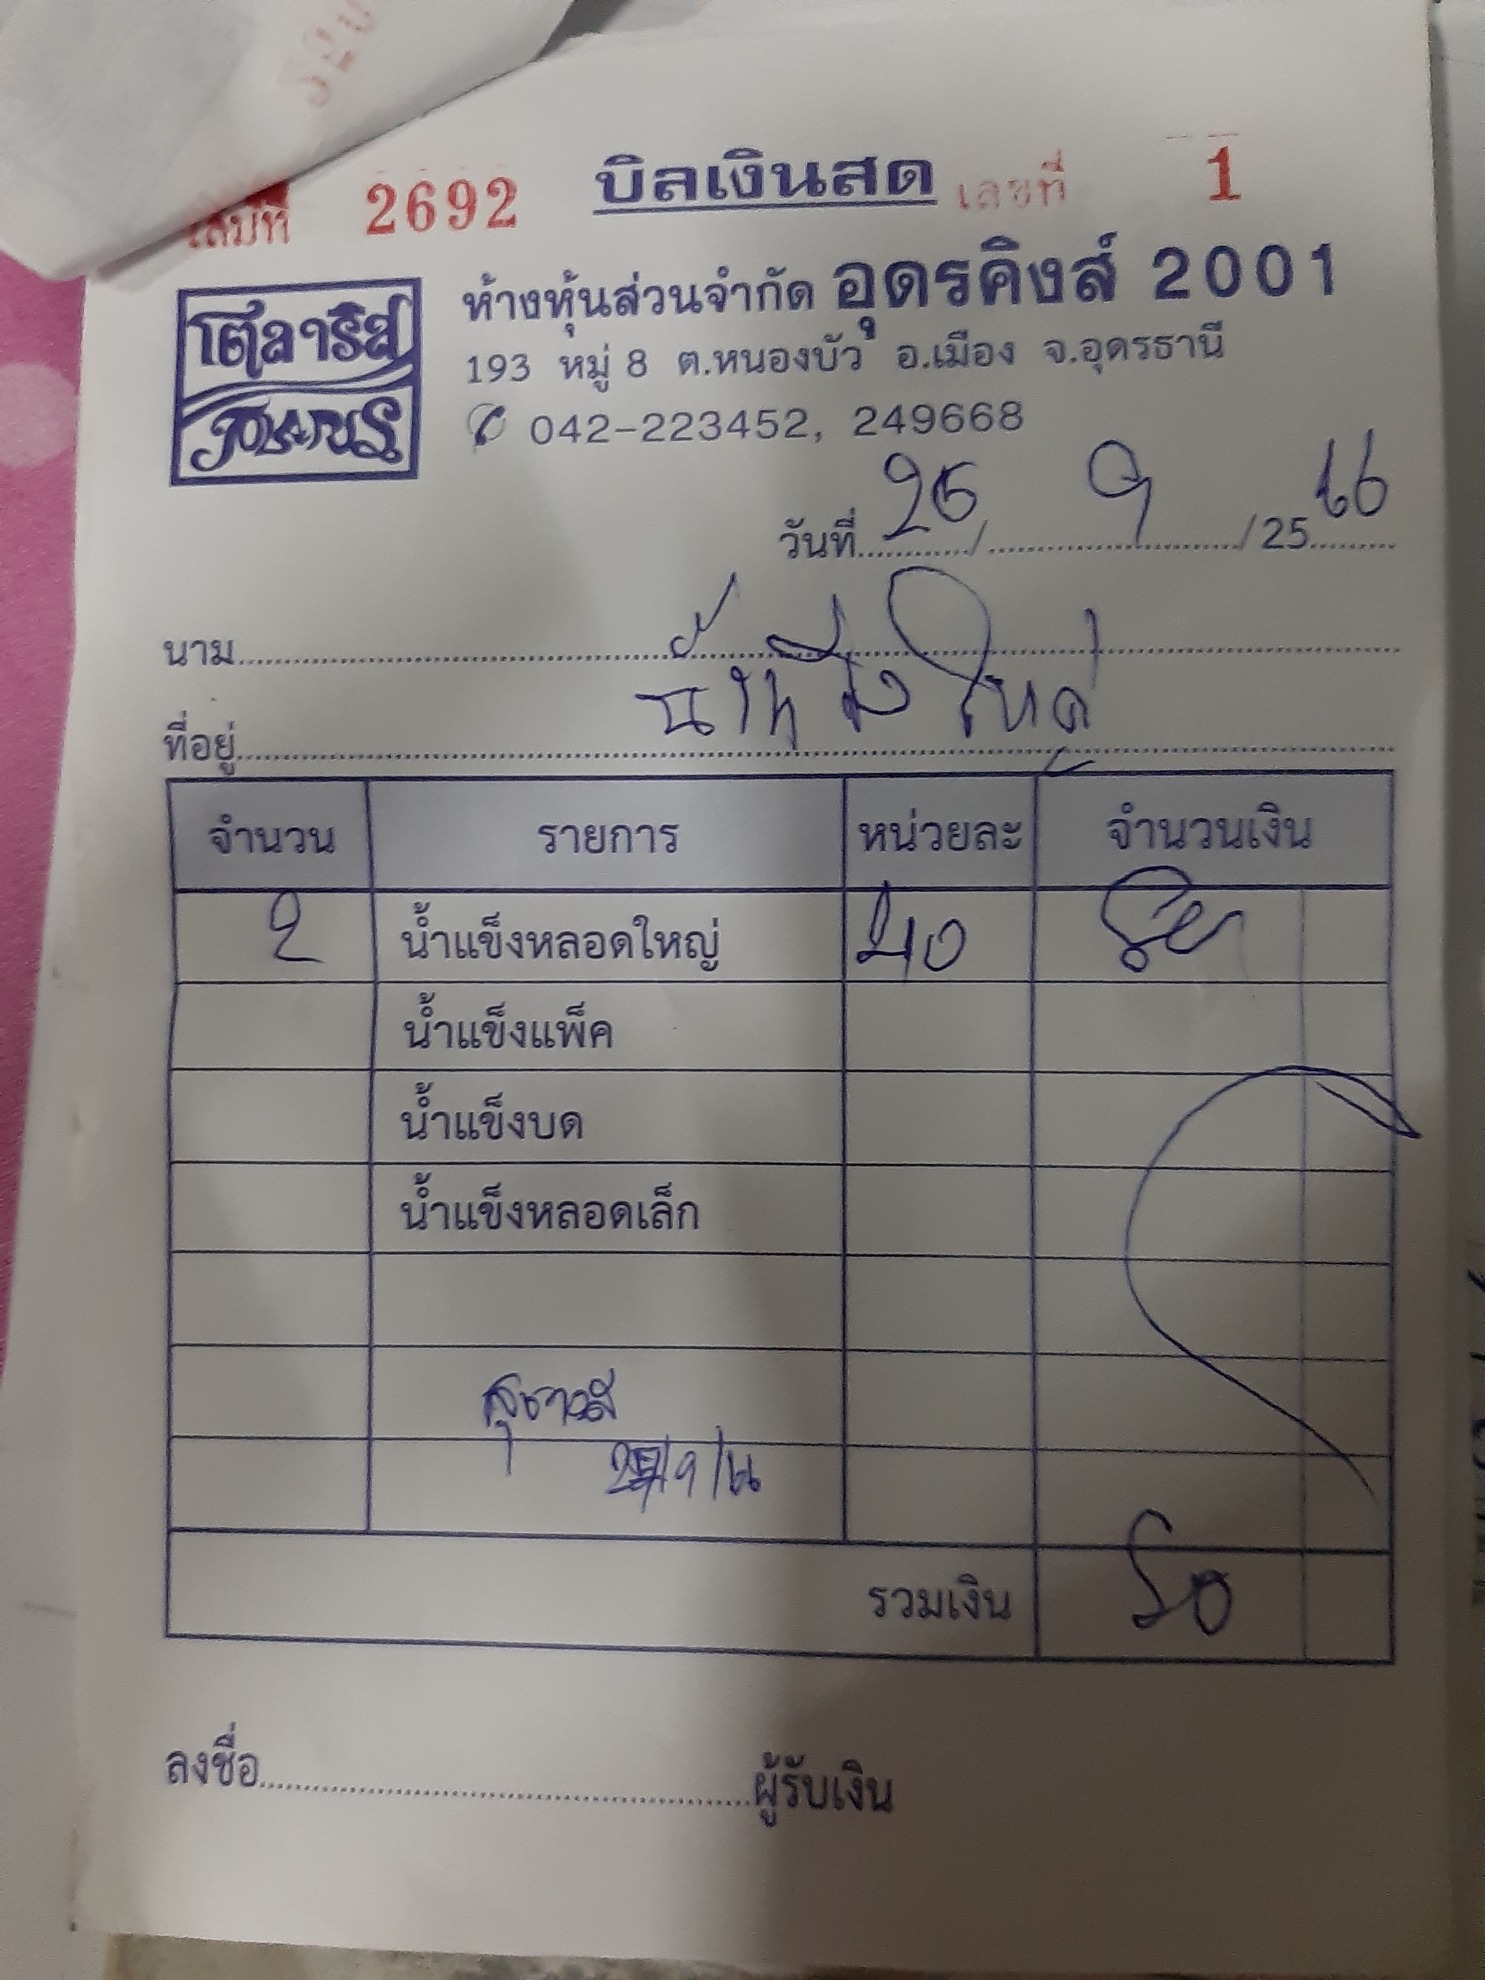 เล่มที่ 2692 บิลเงินสด เลขที่ 1
โตลาริส
ห้างหุ้นส่วนจำกัด อุดรคิงส์ 2001
193 หมู่ 8 ต.หนองบัว อ.เมือง จ.อุดรธานี
042-223452, 249668
วันที่ 26 / 9 / 25 66
นาม
ที่อยู่
จำนวน รายการ หน่วยละ จำนวนเงิน
2 น้ำแข็งหลอดใหญ่ 40
น้ำแข็งแพ็ค
น้ำแข็งบด
น้ำแข็งหลอดเล็ก
รวมเงิน 80
ลงชื่อ ผู้รับเงิน